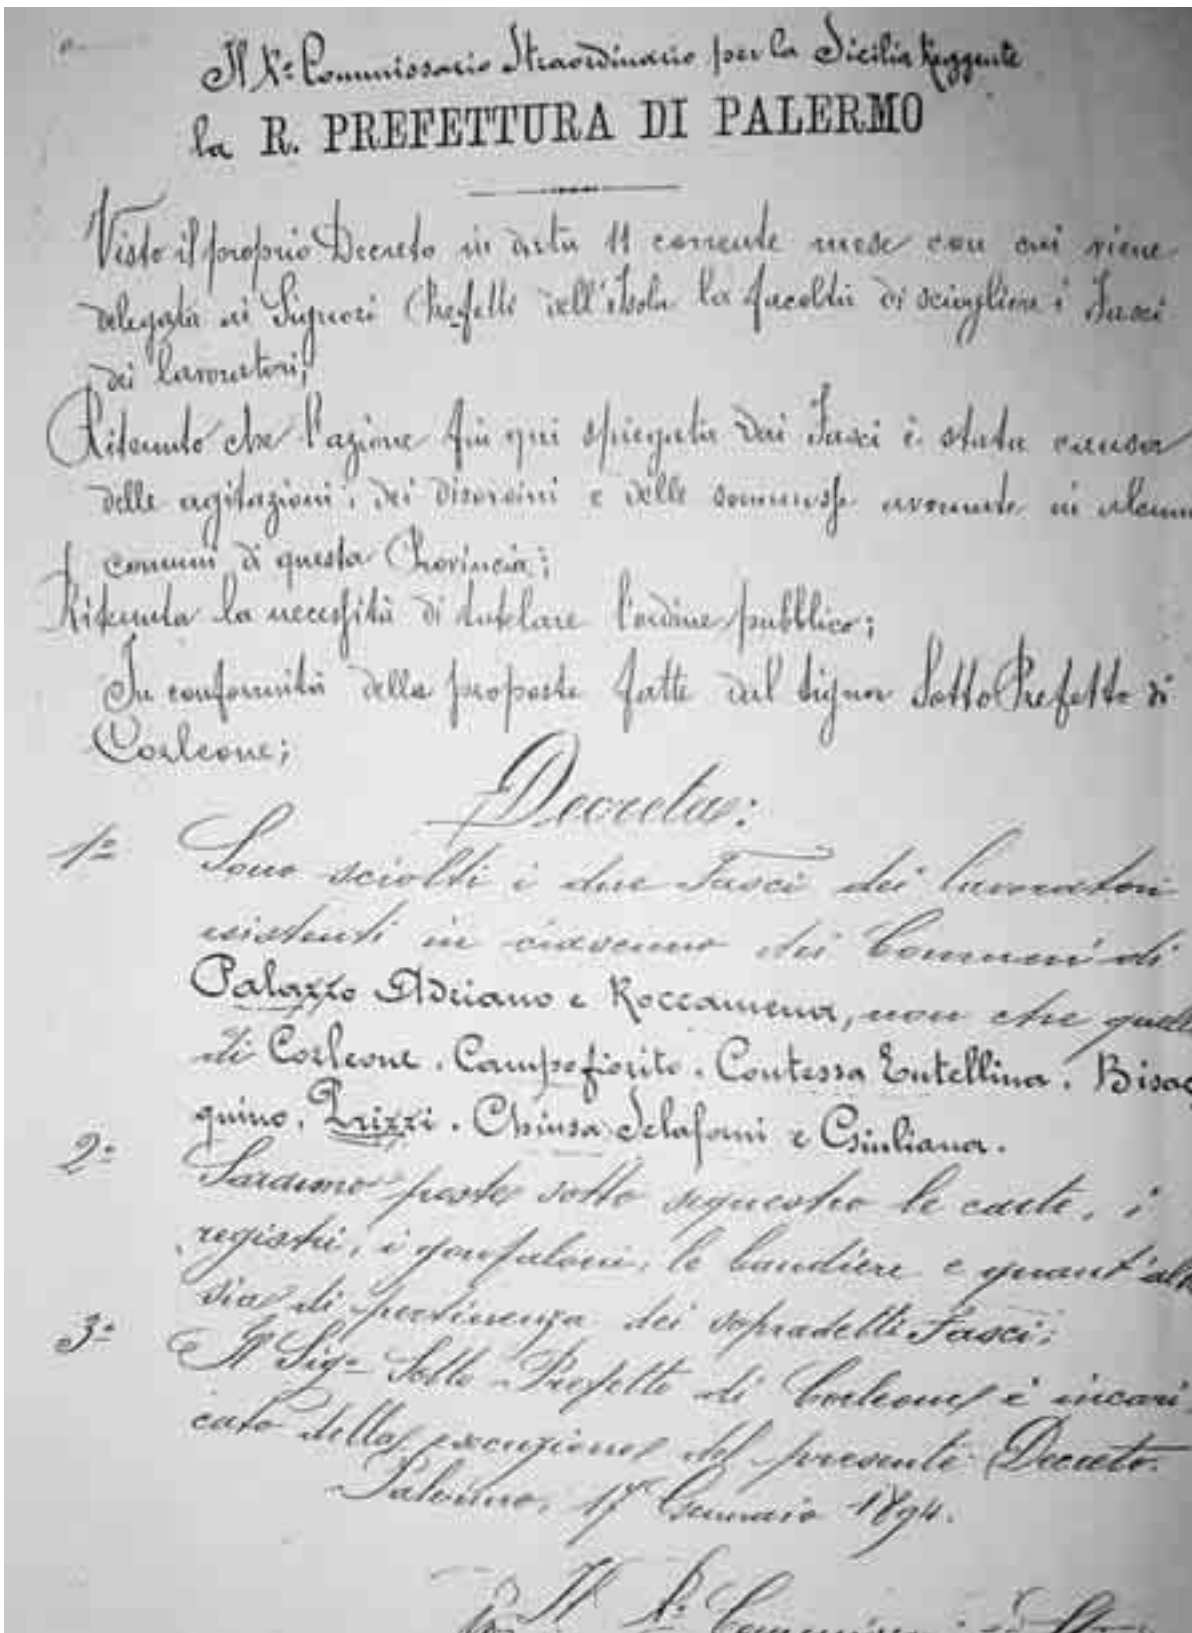 Il R.º Commissario Straordinario per la Sicilia Reggente
la R. PREFETTURA DI PALERMO
Visto il proprio Decreto in data 11 corrente mese con cui viene
delegata ai Signori Prefetti dell'Isola la facoltà di sciogliere i Fasci
dei lavoratori;
Ritenuto che l'azione fin qui spiegata dai Fasci è stata causa
delle agitazioni, dei disordini e delle sommosse avvenute in alcuni
comuni di questa Provincia;
Ritenuta la necessità di tutelare l'ordine pubblico;
In conformità delle proposte fatte dal Signor Sotto Prefetto di
Corleone;
Decreta:
1º Sono sciolti i due Fasci dei lavoratori
esistenti in ciascuno dei Comuni di
Palazzo Adriano e Roccamena, non che quelli
di Corleone. Campofiorito. Contessa Entellina. Bisac
quino. Prizzi. Chiusa Sclafani e Giuliana.
2º Saranno poste sotto sequestro le carte, i
registri, i gonfaloni, le bandiere e quant'altro
sia di pertinenza dei sopradetti Fasci;
3º Il Sigº Sotto-Prefetto di Corleone è incari-
cato della esecuzione del presente Decreto.
Palermo, 17 Gennaio 1894.
Il Rº